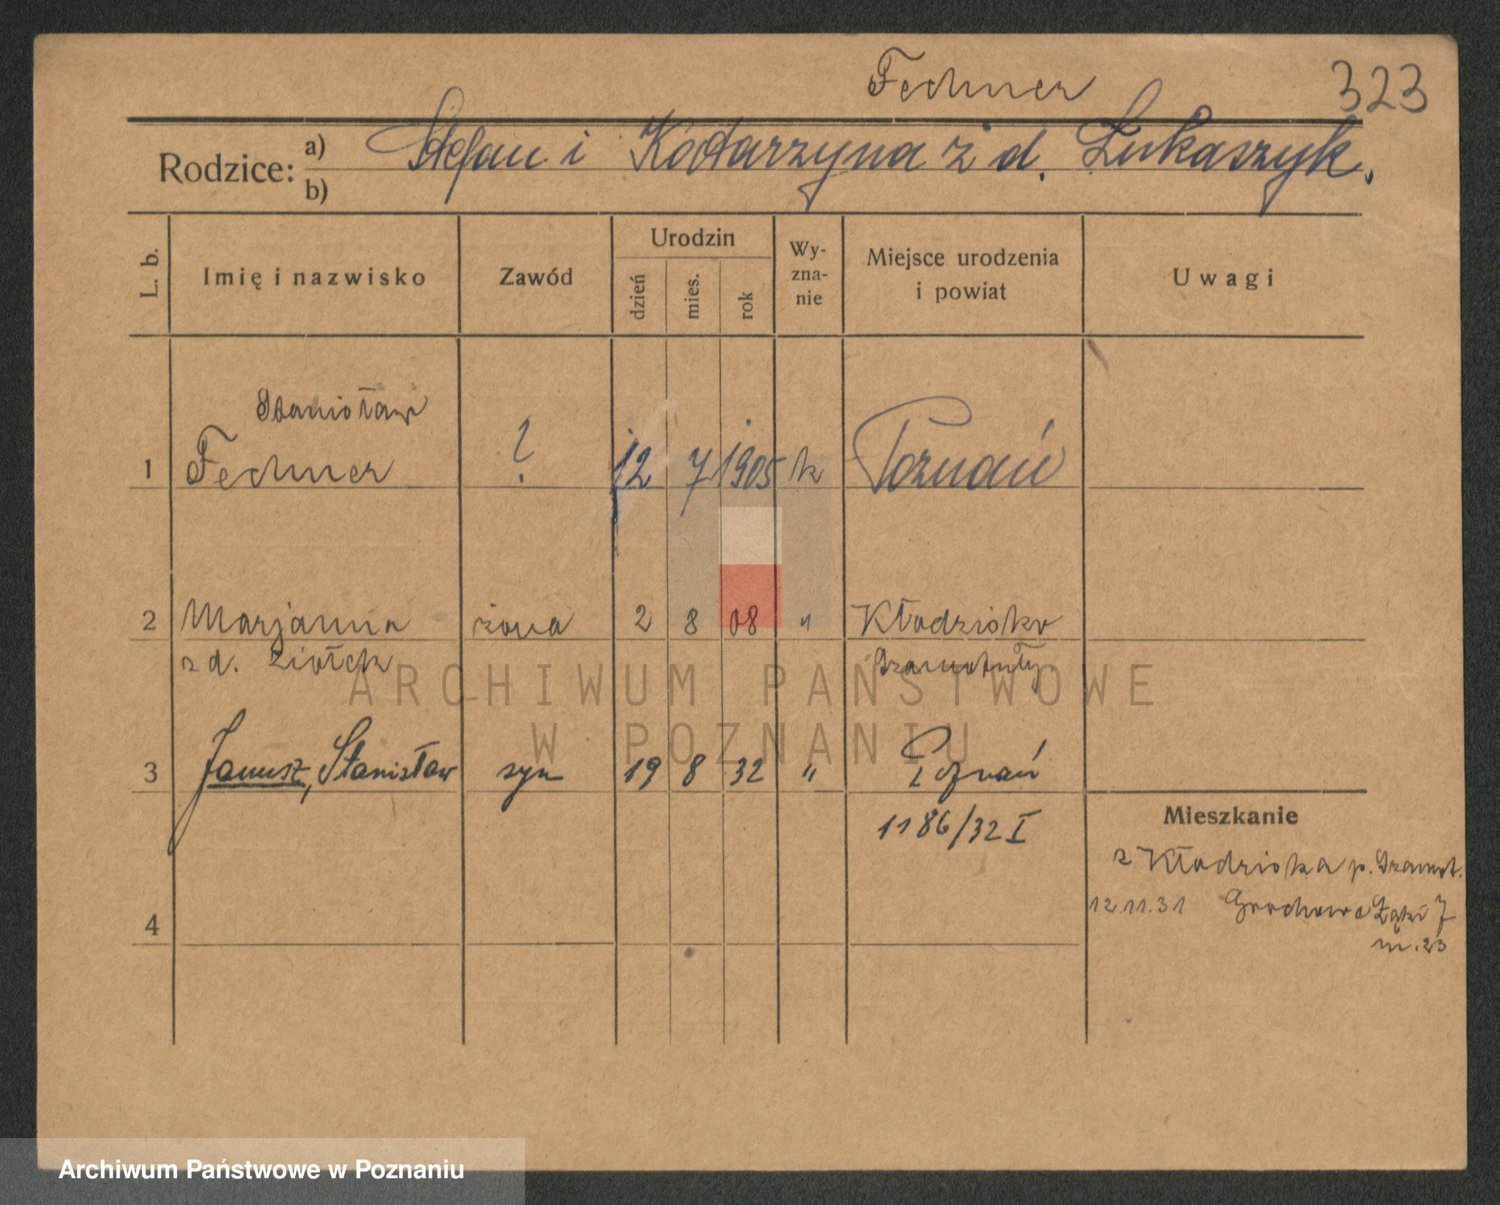 Fechner 323
Rodzice: a) Stefan i Katarzyna z d. Łukaszyk.
b)
L. b. Imię i nazwisko Zawód Urodzin dzień mies. rok Wy-zna-nie Miejsce urodzenia i powiat Uwagi
Stanisław
1 Fechner ? 12 7 1905 k Poznań
2 Marjanna żona 2 8 08 " Kłodzisko
z d. Ziółek Szamotuły
ARCHIWUM PAŃSTWOWE
W POZNANIU
3 Janusz, Stanisław syn 19 8 32 " Poznań
1186/32 I
Mieszkanie
z Kłodziska p. Szamot.
12.11.31 Grochowe Łąki 7
m. 23
4
Archiwum Państwowe w Poznaniu